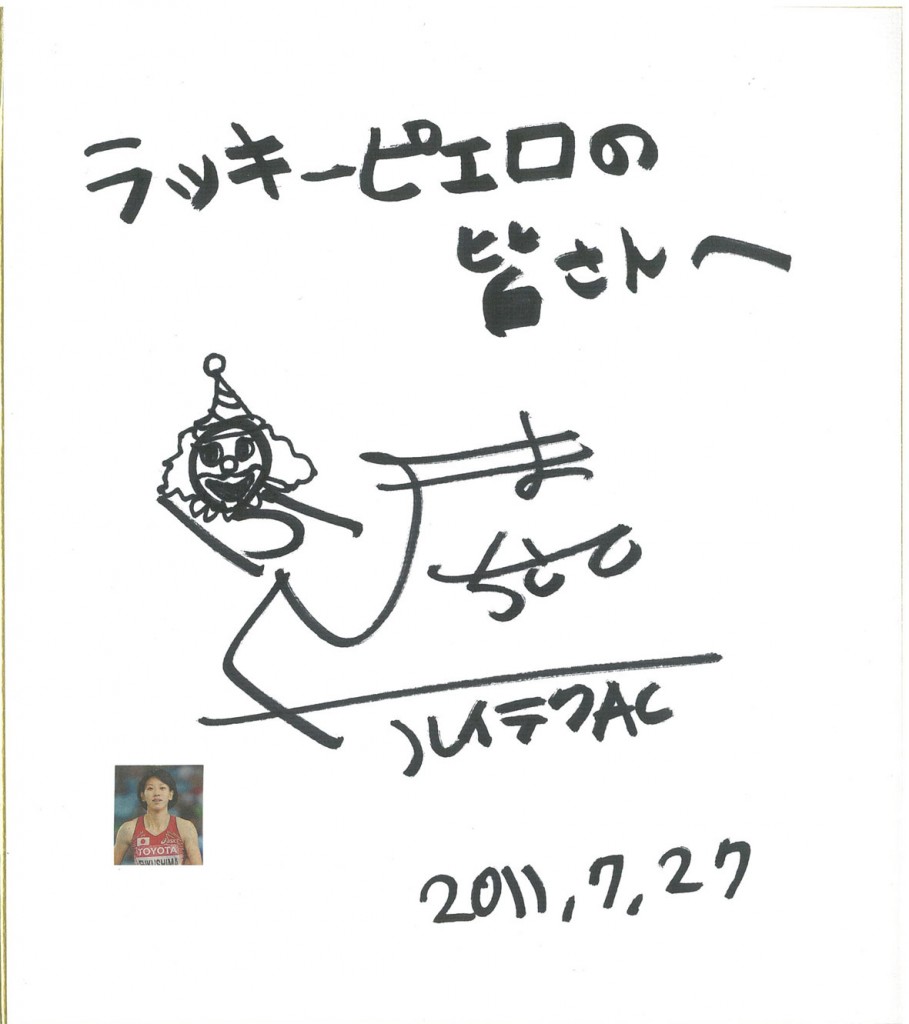 ラッキーピエロの
皆さんへ
ハイテクAC
TOYOTA
2011,7,27